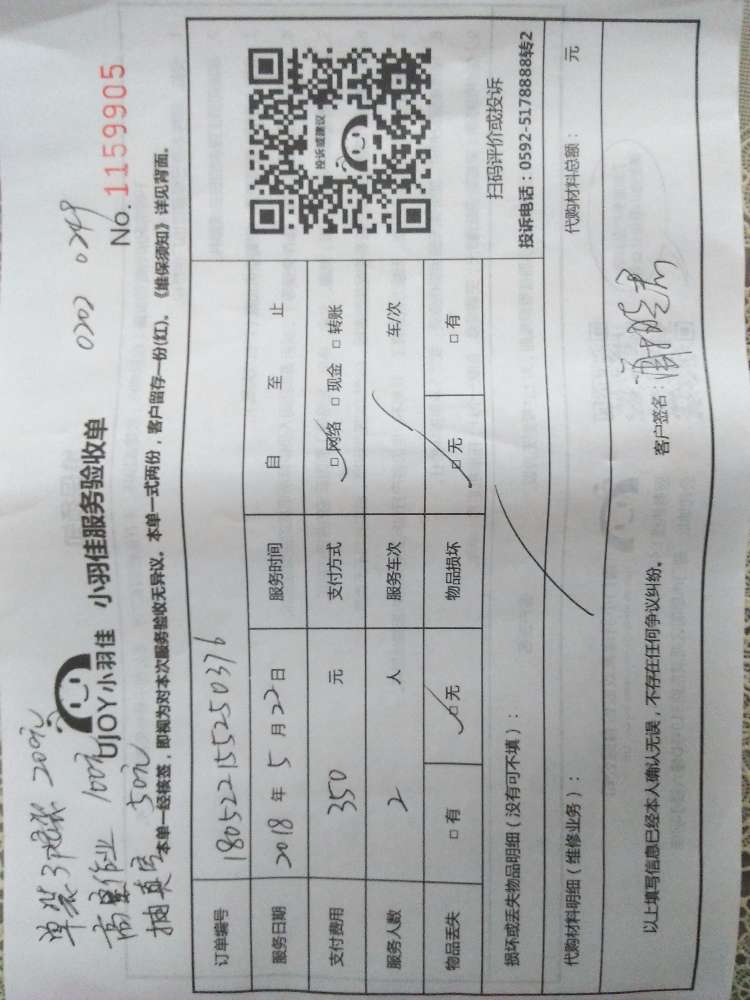 单装3P挂机 200元
高空作业 100元
抽真空 50元
0202 0249
UJOY小羽佳 小羽佳服务验收单
No. 1159905
本单一经核签，即视为对本次服务验收无异议。本单一式两份，客户留存一份(红)。《维保须知》详见背面。
订单编号 18052215525250376
服务日期 2018 年 5 月 22 日 服务时间 自 至 止
支付费用 350 元 支付方式 □网络 □现金 □转账
服务人数 2 人 服务车次 车/次
物品丢失 □有 □无 物品损坏 □无 □有
投诉或建议
扫码评价或投诉
投诉电话：0592-5178888转2
损坏或丢失物品明细（没有可不填）：
代购材料明细（维修业务）： 代购材料总额： 元
以上填写信息已经本人确认无误，不存在任何争议纠纷。 客户签名：